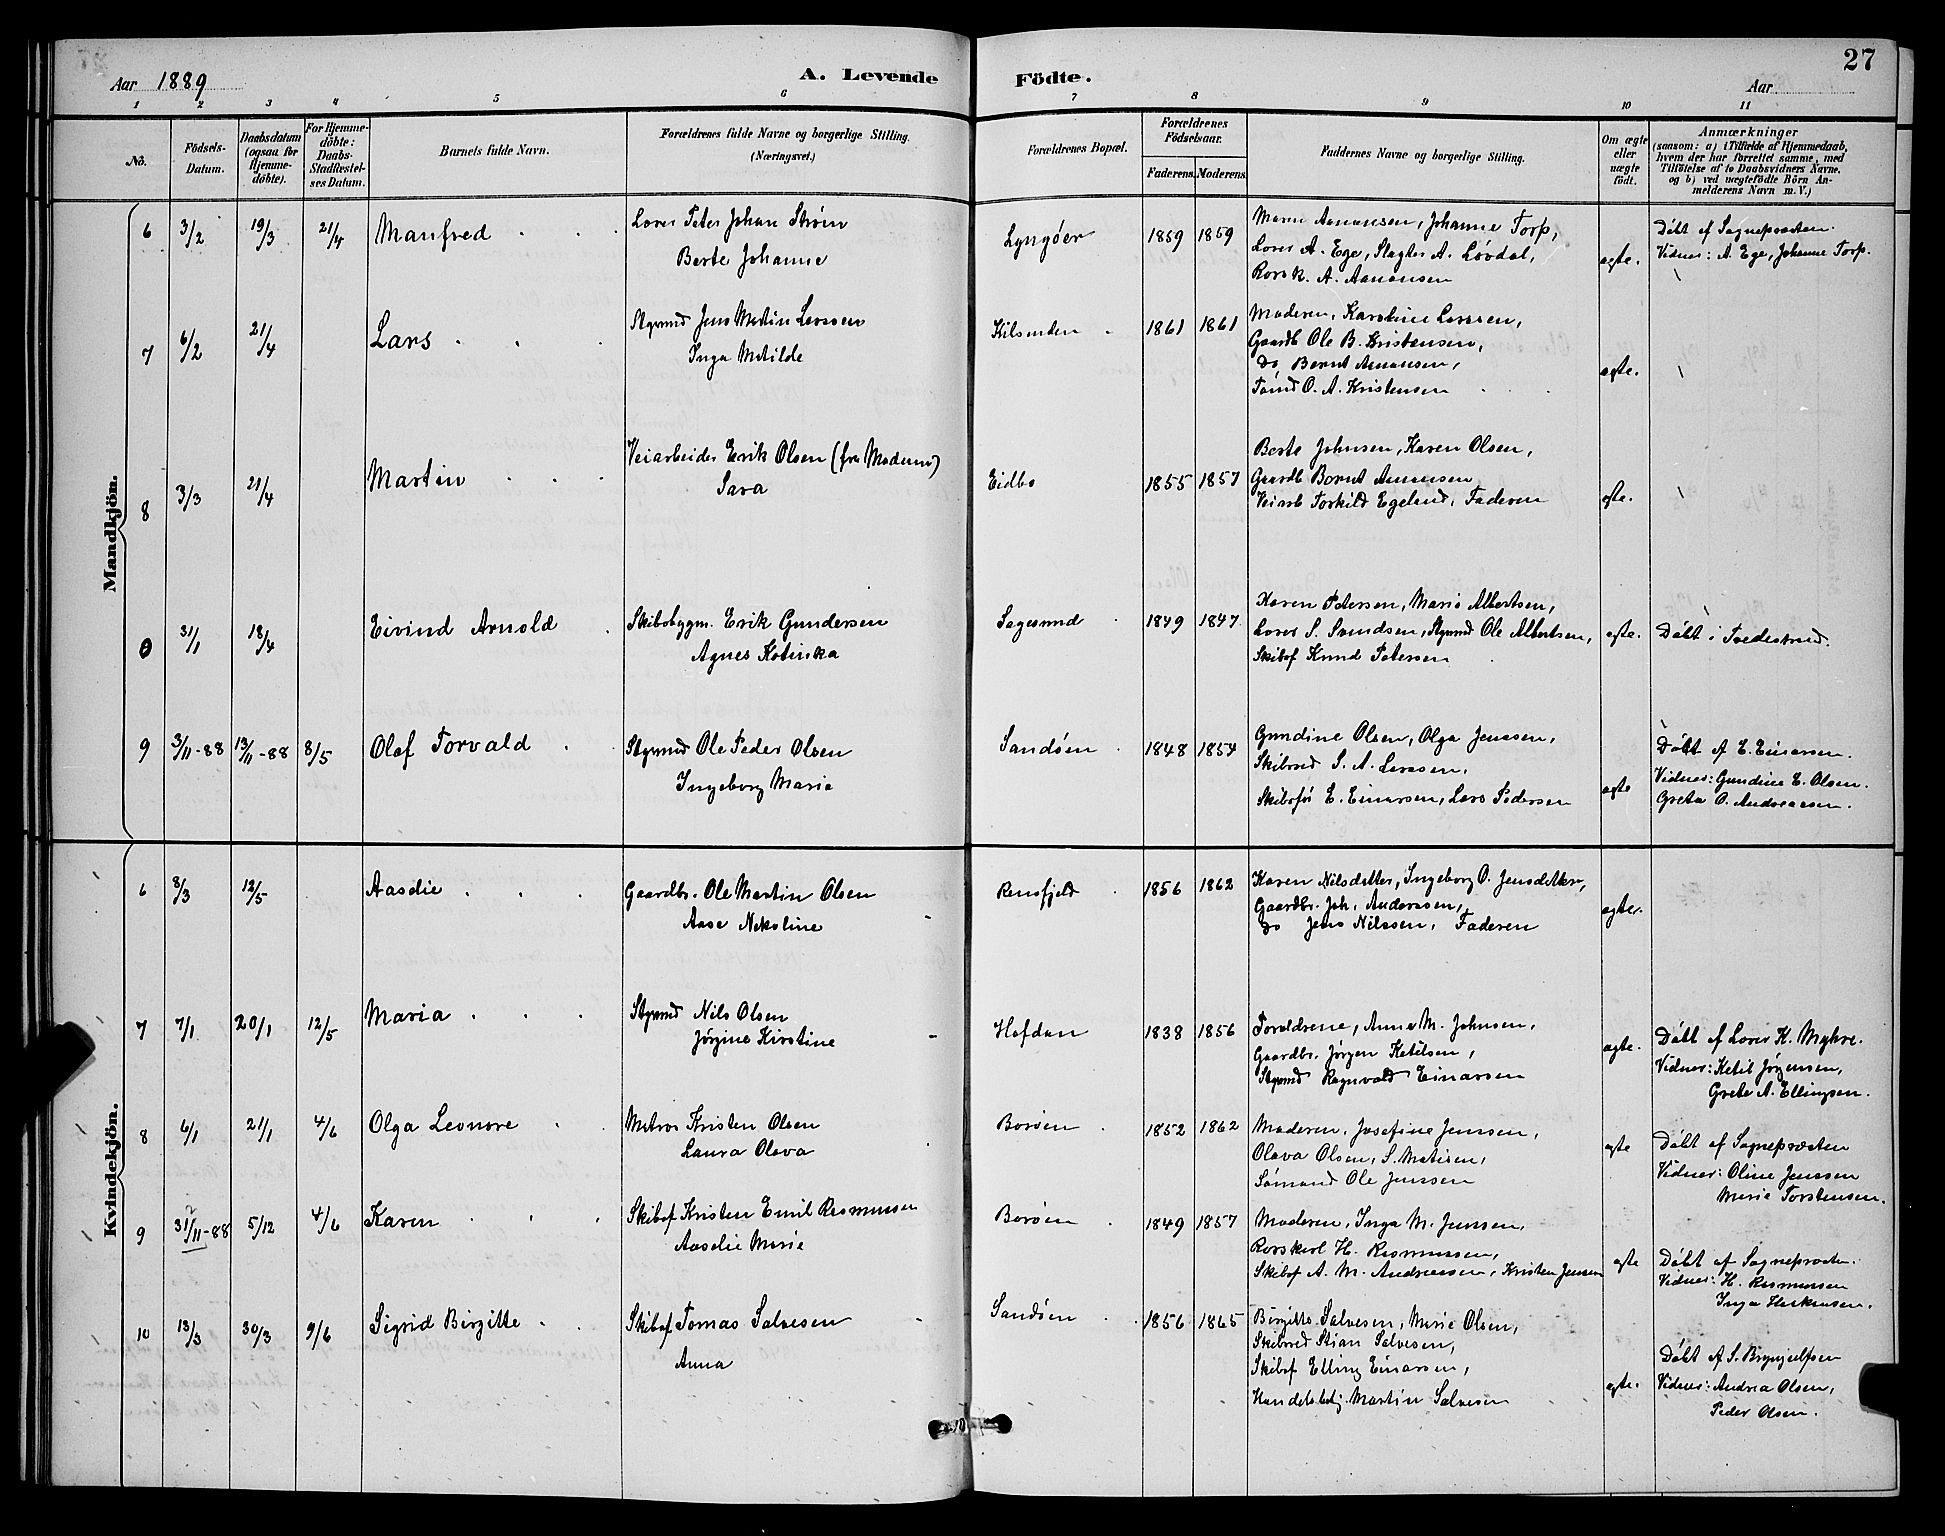 27
Aar 1889
A. Levende Födte.
Aar
1 2 3 4 5 6 7 8 9 10 11
No.
Födsels-Datum.
Daabsdatum (ogsaa for Hjemme-döbte).
For Hjemme-döbte: Daabs-Stadfæstel-ses Datum.
Barnets fulde Navn.
Forældrenes fulde Navne og borgerlige Stilling.
(Næringsvei.)
Forældrenes Bopæl.
Forældrenes Födselsaar.
Faderens. Moderens.
Faddernes Navne og borgerlige Stilling.
Om ægte eller uægte födt.
Anmærkninger
(saasom: a) i Tilfælde af Hjemmedaab,
hvem der har forrettet samme, med
Tilföielse af to Daabsvidners Navne.
og b) ved uægtefödte Börn An-
melderens Navn m. V.)
Mandkjön.
6 3/2 19/3 21/4 Manfred
Lods Peter Johan Strøm
Berte Johanne
Lyngöer 1859 1859
Maren Aanonsen, Johanne Torp,
Lods A. Ege, Slagter A. Lövdal,
Rorsk. A. Aanonsen
ægte.
Döbt af Sognepræsten.
Vidner: A. Ege, Johanne Torp.
7 6/2 21/4 Lars
Styrmd Jens Martin Larssen
Inga Matilde
Kilsunden 1861 1861
Moderen, Karoline Larssen,
Gaardb Ole B. Kristensen,
Do Bernt Aanonsen,
Tömd O. A. Kristensen
ægte.
8 3/3 21/4 Martin
Veiarbeider Erik Olsen (fra Modum)
Sara
Eidbo 1855 1857
Berte Johnsen, Karen Olsen,
Gaardb Bernt Aanonsen
Veiarb Torkild Egeland, Faderen
ægte.
0 31/1 18/4 Eivind Arnold
Skibsbygm. Erik Gundersen
Agnes Katinka
Sagesund 1849 1847
Karen Petersen, Marie Albertsen,
Lods S. Samdsen, Styrmd Ole Albertsen,
Skibsf Knud Petersen
ægte.
Döbt i Tvedestrand.
9 3/11-88 13/11-88 8/5 Olaf Torvald
Styrmd Ole Peder Olsen
Ingeborg Marie
Sandöen 1848 1854
Gundine Olsen, Olga Jenssen,
Skibsred S. A. Larssen,
Skibsför E. Einarsen, Lars Pedersen
ægte
Döbt af E. Einarsen.
Vidner: Gundine E. Olsen.
Grete O. Andreassen.
Kvindekjön.
6 8/3 12/5 Aasdie
Gaardbr. Ole Martin Olsen
Aase Nikoline
Rensfjeld 1856 1862
Karen Nilsdatter, Ingeborg O. Jensdatter,
Gaardbr. Joh. Anderssen,
Do Jens Nilssen, Faderen
ægte.
7 7/1 20/1 12/5 Maria
Styrmd Nils Olsen
Jørgine Kirstine
Hafdan 1838 1856
Forældrene, Anne M. Johnsen,
Gaardbr. Jörgen Ketilsen,
Styrmd Ragnvald Einarsen
ægte.
Döbt af Lods K. Myhre.
Vidner: Ketil Jörgensen,
Grete A. Ellingsen.
8 6/1 21/1 4/6 Olga Leonore
Matros Kristen Olsen
Laura Olava
Boröen 1852 1862
Moderen, Josefine Jenssen,
Olava Olsen, S. Matisen,
Sömand Ole Jenssen
ægte
Döbt af Sognepræsten
Vidner: Oline Jenssen
Marie Torstensen.
9 31/11-88 5/12 4/6 Karen
Skibsf Kristen Emil Rasmussen
Aaselie Marie
Boröen 1849 1857
Moderen, Inga M. Jenssen,
Rorskarl H. Rasmussen,
Skibsf A. M. Andreassen, Kristen Jensen
ægte
Döbt af Sognepræsten.
Vidner: H. Rasmussen
10 13/3 30/3 9/6 Sigrid Birgitte
Skibsf Tomas Salvesen
Anna
Sandöen 1856 1865
Birgitte Salvesen, Marie Olsen,
Skibsred Stian Salvesen,
Skibsf Elling Einarsen,
Handelsbetj. Martin Salvesen
ægte.
Döbt af S. Brynjulfsen
Vidner: Andrea Olsen,
Peder Olsen.